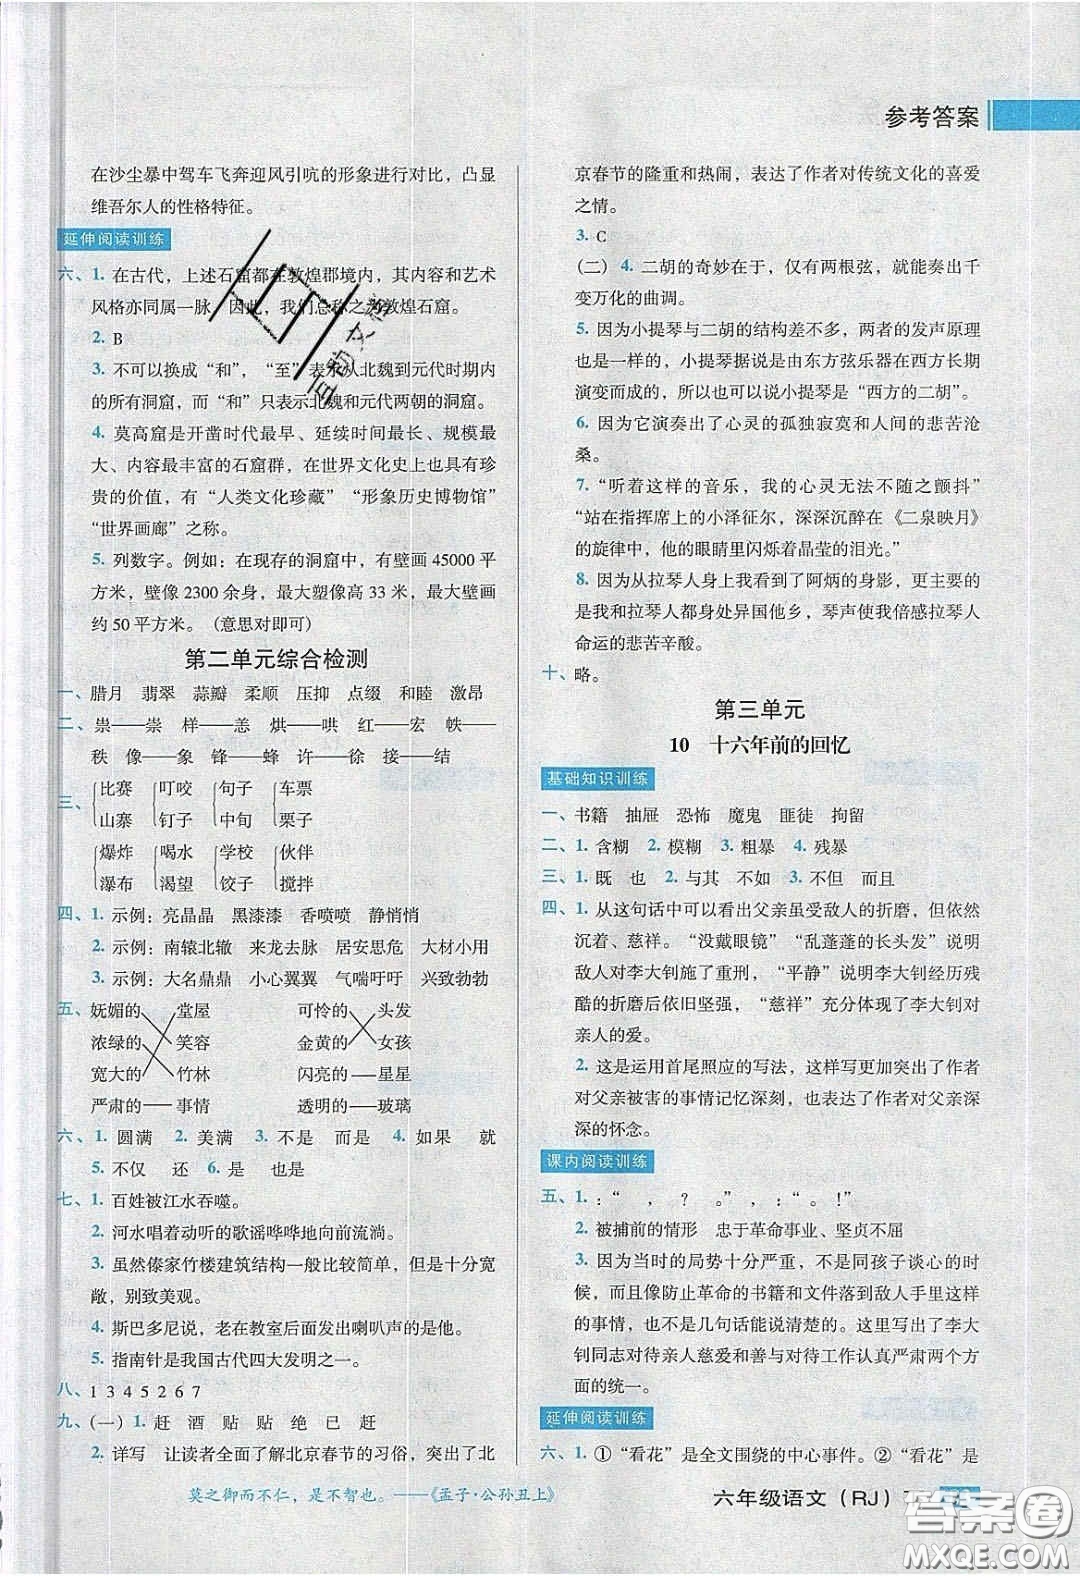 参考答案
在沙尘暴中驾车飞奔迎风引吭的形象进行对比，凸显
维吾尔人的性格特征。
延伸阅读训练
六、1. 在古代，上述石窟都在敦煌郡境内，其内容和艺术
风格亦同属一脉，因此，我们总称之为敦煌石窟。
2. B
3. 不可以换成“和”，“至”表示从北魏到元代时期内
的所有洞窟，而“和”只表示北魏和元代两朝的洞窟。
4. 莫高窟是开凿时代最早、延续时间最长、规模最
大、内容最丰富的石窟群，在世界文化史上也具有珍
贵的价值，有“人类文化珍藏”“形象历史博物馆”
“世界画廊”之称。
5. 列数字。例如：在现存的洞窟中，有壁画 45000 平
方米，壁像 2300 余身，最大塑像高 33 米，最大壁画
约 50 平方米。（意思对即可）
第二单元综合检测
一、腊月 翡翠 蒜瓣 柔顺 压抑 点缀 和睦 激昂
二、祟——崇 样——恙 烘——哄 红——宏 帙——
秩 像——象 锋——蜂 许——徐 接——结
三、
比赛 叮咬 句子 车票
山寨 钉子 中旬 栗子
爆炸 喝水 学校 伙伴
瀑布 渴望 饺子 搅拌
四、1. 示例：亮晶晶 黑漆漆 香喷喷 静悄悄
2. 示例：南辕北辙 来龙去脉 居安思危 大材小用
3. 示例：大名鼎鼎 小心翼翼 气喘吁吁 兴致勃勃
五、妩媚的 堂屋 可怜的 头发
浓绿的 笑容 金黄的 女孩
宽大的 竹林 闪亮的 星星
严肃的 事情 透明的 玻璃
六、1. 圆满 2. 美满 3. 不是 而是 4. 如果 就
5. 不仅 还 6. 是 也是
七、1. 百姓被江水吞噬。
2. 河水唱着动听的歌谣哗哗地向前流淌。
3. 虽然傣家竹楼建筑结构一般比较简单，但是十分宽
敞，别致美观。
4. 斯巴多尼说，老在教室后面发出喇叭声的是他。
5. 指南针是我国古代四大发明之一。
八、1 3 4 5 2 6 7
九、（一）1. 赶 酒 贴 贴 绝 已 赶
2. 详写 让读者全面了解北京春节的习俗，突出了北
京春节的隆重和热闹，表达了作者对传统文化的喜爱
之情。
3. C
（二）4. 二胡的奇妙在于，仅有两根弦，就能奏出千
变万化的曲调。
5. 因为小提琴与二胡的结构差不多，两者的发声原理
也类似，小提琴据说是由东方弦乐器在西方长期
演变而成的，所以也可以说小提琴是“西方的二胡”。
6. 因为它演奏出了心灵的孤独寂寞和人间的悲苦沧
桑。
7. “听着这样的音乐，我的心灵无法不随之颤抖”
“站在指挥席上的小泽征尔，深深沉醉在《二泉映月》
的旋律中，他的眼睛里闪烁着晶莹的泪光。”
8. 因为从拉琴人身上我看到了阿炳的身影，更重要的
是我和拉琴人都身处异国他乡，琴声使我倍感拉琴人
命运的悲苦辛酸。
十、略。
第三单元
10 十六年前的回忆
基础知识训练
一、书籍 抽屉 恐怖 魔鬼 匪徒 拘留
二、1. 含糊 2. 模糊 3. 粗暴 4. 残暴
三、1. 既 也 2. 与其 不如 3. 不但 而且
四、1. 从这句话中可以看出父亲虽受敌人的折磨，但依然
沉着、慈祥。“没戴眼镜”“乱蓬蓬的长头发”说明
敌人对李大钊施了重刑，“平静”说明李大钊经历残
酷的折磨后依旧坚强，“慈祥”充分体现了李大钊对
亲人的爱。
2. 这是运用首尾照应的写法，这样更加突出了作者
对父亲被害的事情记忆深刻，也表达了作者对父亲深
深的怀念。
课内阅读训练
五、1. ：“ ， ？ 。”，：“ 。！”
2. 被捕前的情形 忠于革命事业、坚贞不屈
3. 因为当时的局势十分严重，不同孩子谈心的时候
了，而且像防止革命的书籍和文件落到敌人手里这样
的事情，也不是几句话能说清楚的。这里写出了李大
钊同志对待亲人慈爱和善与对待工作认真严肃两个方
面的统一。
延伸阅读训练
六、1. ①“看花”是全文围绕的中心事件。②“看花”是
莫之御而不仁，是不智也。——《孟子·公孙丑上》
六年级语文（RJ）
答案圈
MXQE.COM